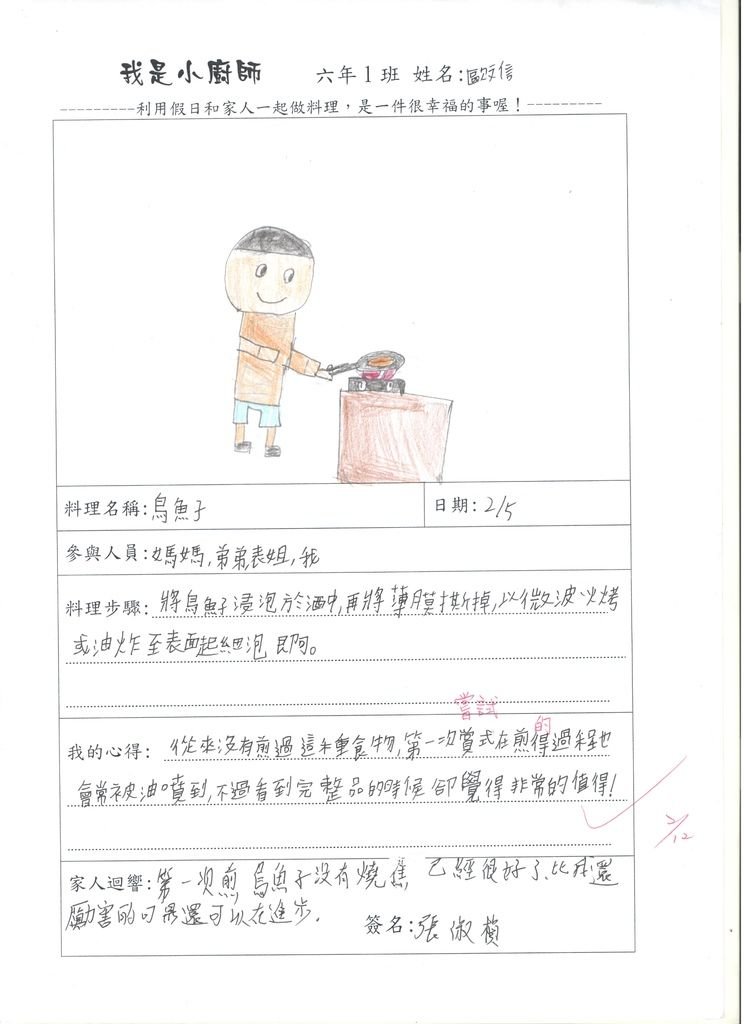 我是小廚師 六年1班 姓名:歐文信
---------利用假日和家人一起做料理，是一件很幸福的事喔！---------
料理名稱:烏魚子 日期:2/5
參與人員:媽媽,弟弟表姐,我
料理步驟:將烏魚子浸泡於酒中,再將薄膜撕掉,以微波火烤
或油炸至表面起細泡即可。
嘗試 的
我的心得:從來沒有煎過這種食物,第一次嘗式在煎得過程也
會常被油噴到,不過看到完整品的時候卻覺得非常的值得!
2/12
家人迴響:第一次煎烏魚子沒有燒焦 已經很好了、比我還
厲害的 還可以在進步.
簽名:張淑